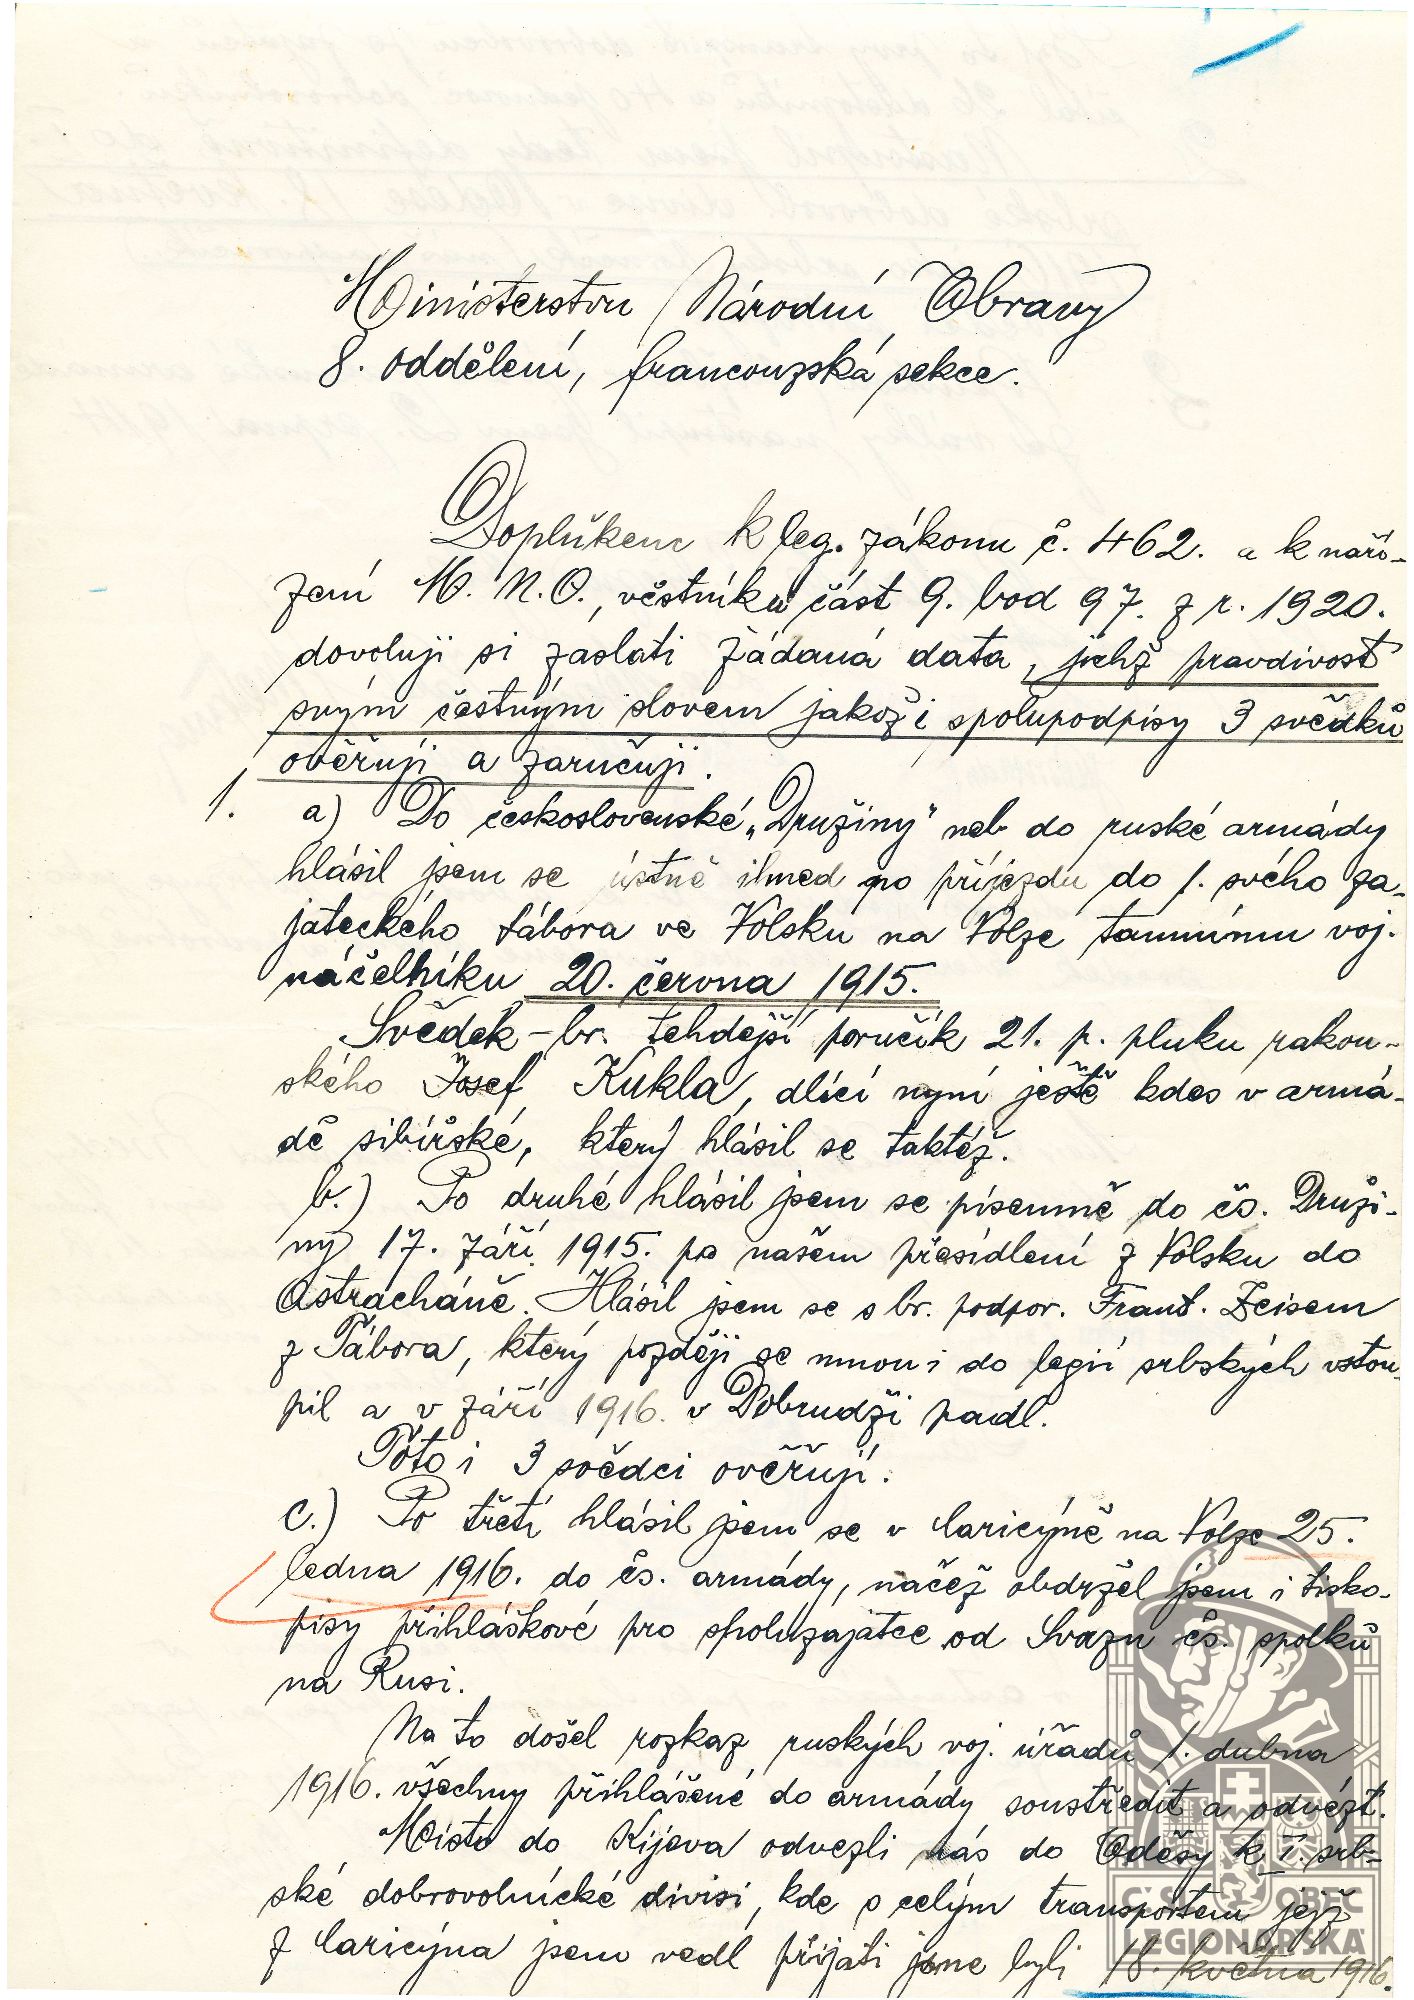 Ministerstvu Národní Obrany
8. oddělení, francouzská sekce.
Doplňkem k leg. zákonu č. 462. a k naří-
zení M. N. O., věstníku část 9. bod 97. z r. 1920.
dovoluji si zaslati žádaná data, jichž pravdivost
svým čestným slovem jakož i spolupodpisy 3 svědků
ověřuji a zaručuji.
1. a) Do československé „Družiny" neb do ruské armády
hlásil jsem se ústně ihned po příjezdu do 1. svého za-
jateckého tábora ve Volsku na Volze tamnímu voj.
náčelníku 20. června 1915.
Svědek - br. tehdejší poručík 21. p. pluku rakou-
ského Josef Kukla, dlící nyní ještě kdes v armá-
dě sibiřské, který hlásil se taktéž.
b.) Po druhé hlásil jsem se písemně do čs. Druži-
ny 17. září 1915. po našem přesídlení z Volsku do
Astracháně. Hlásil jsem se s br. podpor. Frant. Zeisem
z Tábora, který později se mnou i do legií srbských vstou-
pil a v září 1916. v Dobrudži padl.
Toto i 3 svědci ověřují.
c.) Po třetí hlásil jsem se v Caricýně na Volze 25.
ledna 1916. do čs. armády, načež obdržel jsem i tisko-
pisy přihláškové pro spoluzajatce od Svazu čs. spolků
na Rusi.
Na to došel rozkaz ruských voj. úřadů 1. dubna
1916. všechny přihlášené do armády soustředit a odvézt.
Místo do Kijeva odvezli nás do Oděsy k I. srb-
ské dobrovolnické divisi, kde s celým transportem jejž
z Caricýna jsem vedl přijati jsme byli 18. května 1916.
ČSL. OBEC
LEGIONÁŘSKÁ